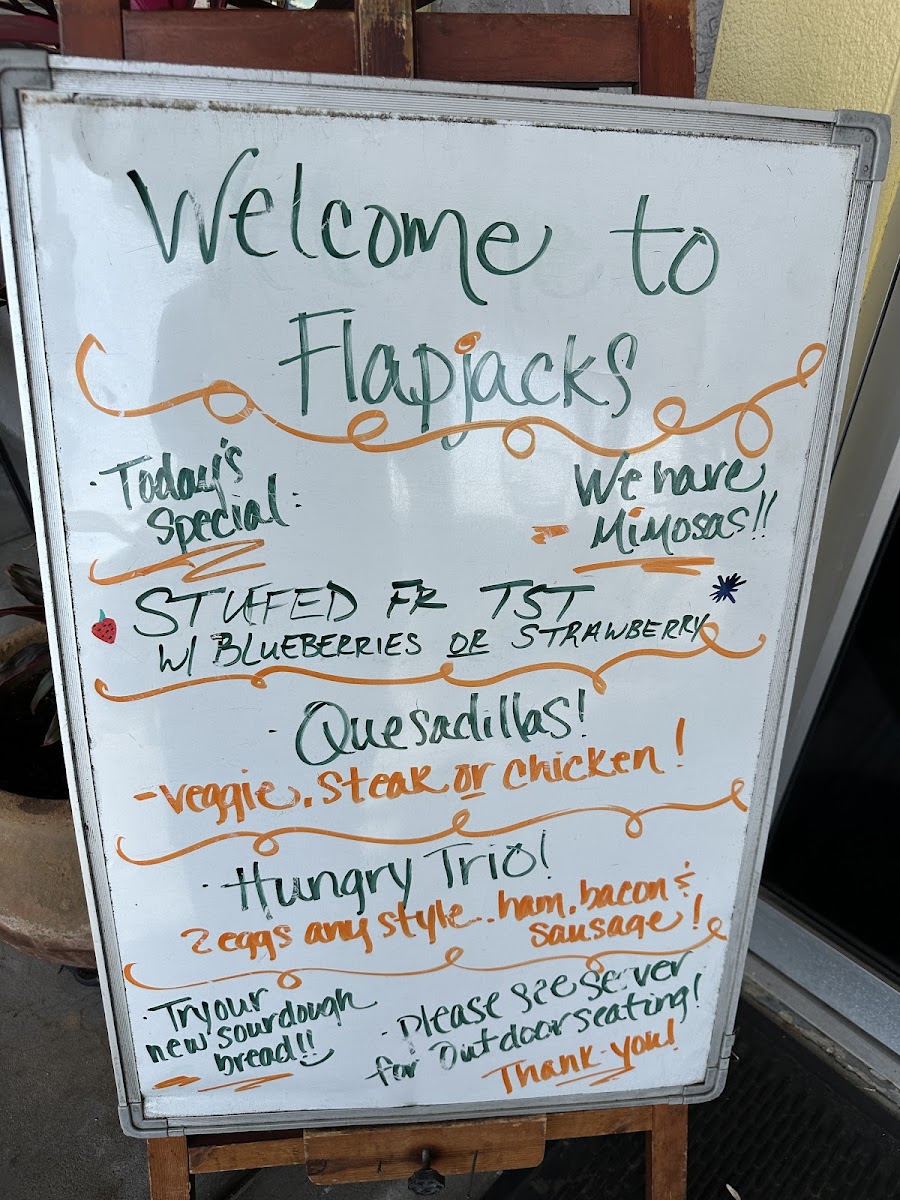 Welcome to
Flapjacks
· Today's
Special:
We have
- Mimosas!!
STUFFED FR TST
W/ BLUEBERRIES OR STRAWBERRY
· Quesadillas!
- veggie, steak or chicken!
· Hungry Trio!
2 eggs any style, ham, bacon &
sausage!
· Try our
new sourdough
bread!!
· Please see server
for Outdoor seating!
Thank you!